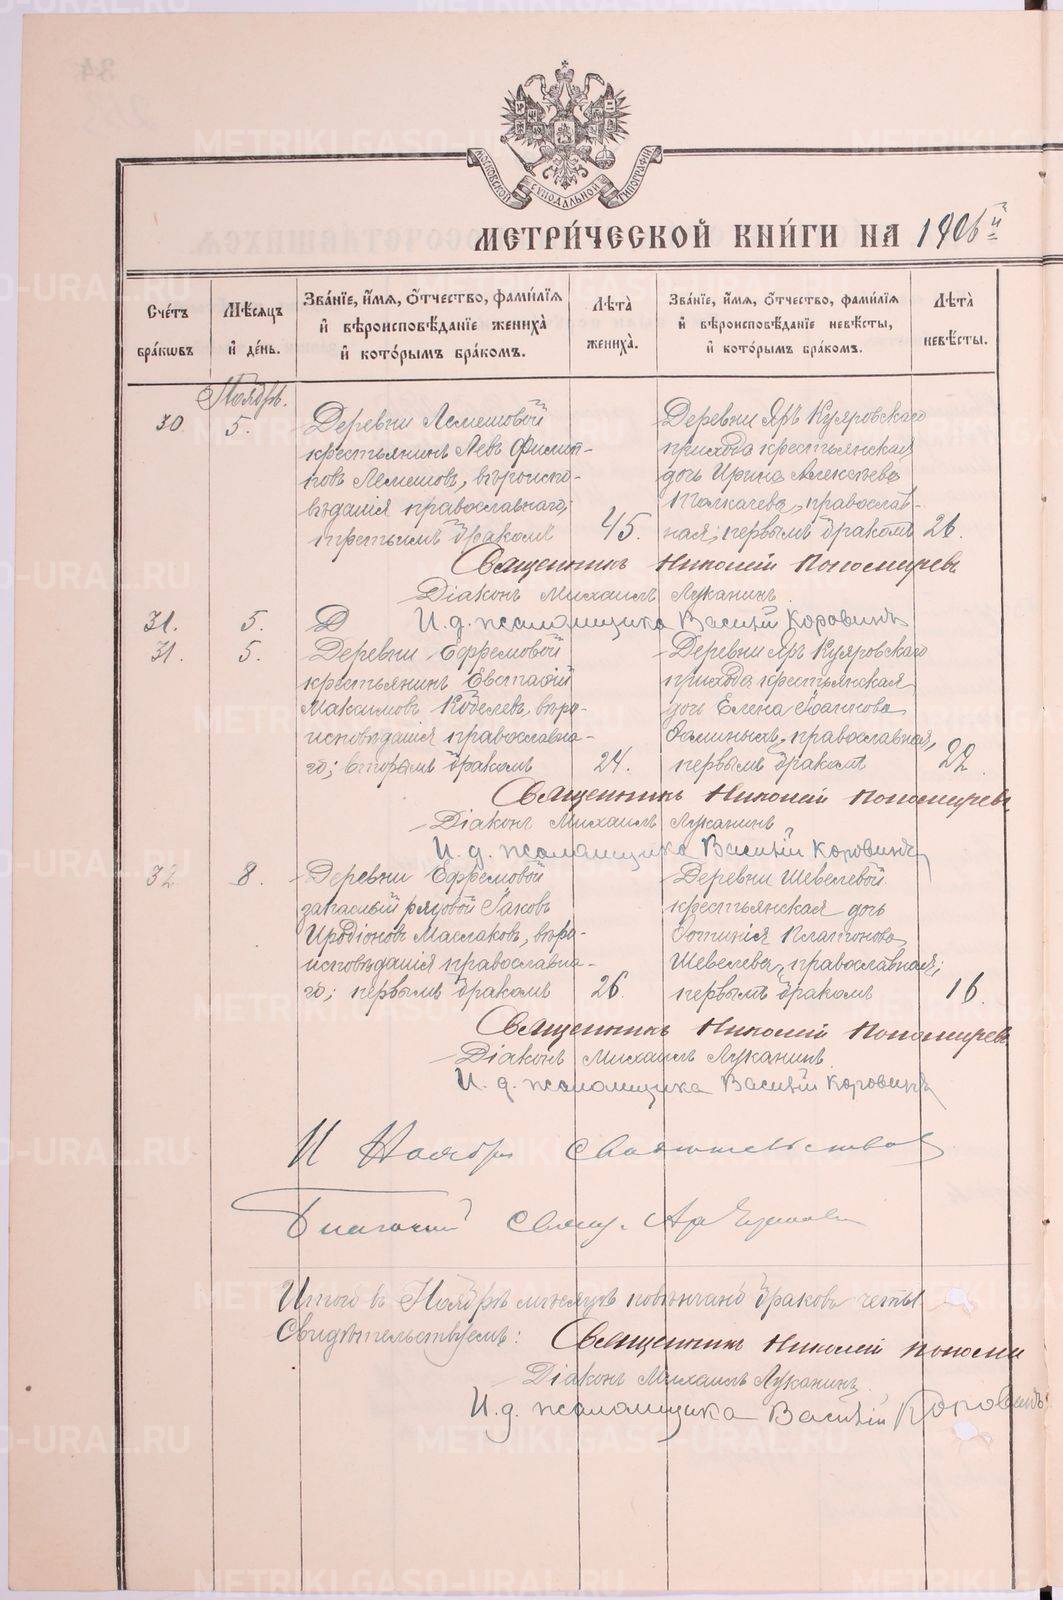 34
МОСКОВСКОЙ СѴНОДАЛЬНОЙ ТИПОГРАФІИ
МЕТРИ́ЧЕСКОЙ КНИ́ГИ НА 1906 й
Сче́тъ бра́кѡвъ
Мѣ́сяцъ и҆ де́нь.
Зва́нїе, и҆́мѧ, ѻ҆́тчество, фамѝлїѧ и҆ вѣроисповѣ́данїе женихà и҆ кото́рымъ бра́комъ.
Лѣтà женихà.
Зва́нїе, и҆́мѧ, ѻ҆́тчество, фамѝлїѧ и҆ вѣроисповѣ́данїе невѣ́сты, и҆ кото́рымъ бра́комъ.
Лѣтà невѣ́сты.
Ноябрь.
30 5.
Деревни Лемешовой
крестьянинъ Левъ Филип-
повъ Лемешовъ, вѣроиспо-
вѣданія православнаго;
третьимъ бракомъ 45.
Деревни Яръ Куяровскаго
прихода крестьянская
дочь Ирина Алексѣева
Толкачева, православ-
ная; первымъ бракомъ 26.
Священникъ Николай Пономаревъ
Діаконъ Михаилъ Луканинъ.
31. 5. Д И. д. псаломщика Василій Коровинъ
31. 5.
Деревни Ефремовой
крестьянинъ Евстафій
Максимовъ Кобелевъ, вѣро-
исповѣданія православна-
го; вторымъ бракомъ 24.
Деревни Яръ Куяровскаго
прихода крестьянская
дочь Елена Іоаннова
Фоминыхъ, православная,
первымъ бракомъ 22.
Священникъ Николай Пономаревъ
Діаконъ Михаилъ Луканинъ
И. д. псаломщика Василій Коровинъ
32 8.
Деревни Ефремовой
запасный рядовой Іаковъ
Иродіоновъ Маслаковъ, вѣро-
исповѣданія православна-
го; первымъ бракомъ 26.
Деревни Шевелевой
крестьянская дочь
Фотинія Платонова
Шевелева, православная;
первымъ бракомъ 16.
Священникъ Николай Пономаревъ
Діаконъ Михаилъ Луканинъ.
И. д. псаломщика Василій Коровинъ
Ноябрь
Благочинный Свящ.
Итого въ Ноябрѣ мѣсяцѣ повѣнчано браковъ четы
Свидѣтельствуемъ: Священникъ Николай Понома
Діаконъ Михаилъ Луканинъ.
И. д. псаломщика Василій Коровинъ
METRIKI.GASO-URAL.RU